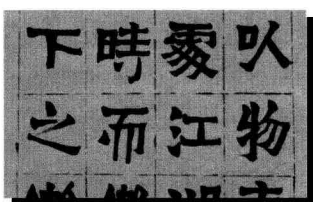 㕥物
處江
時而
下之